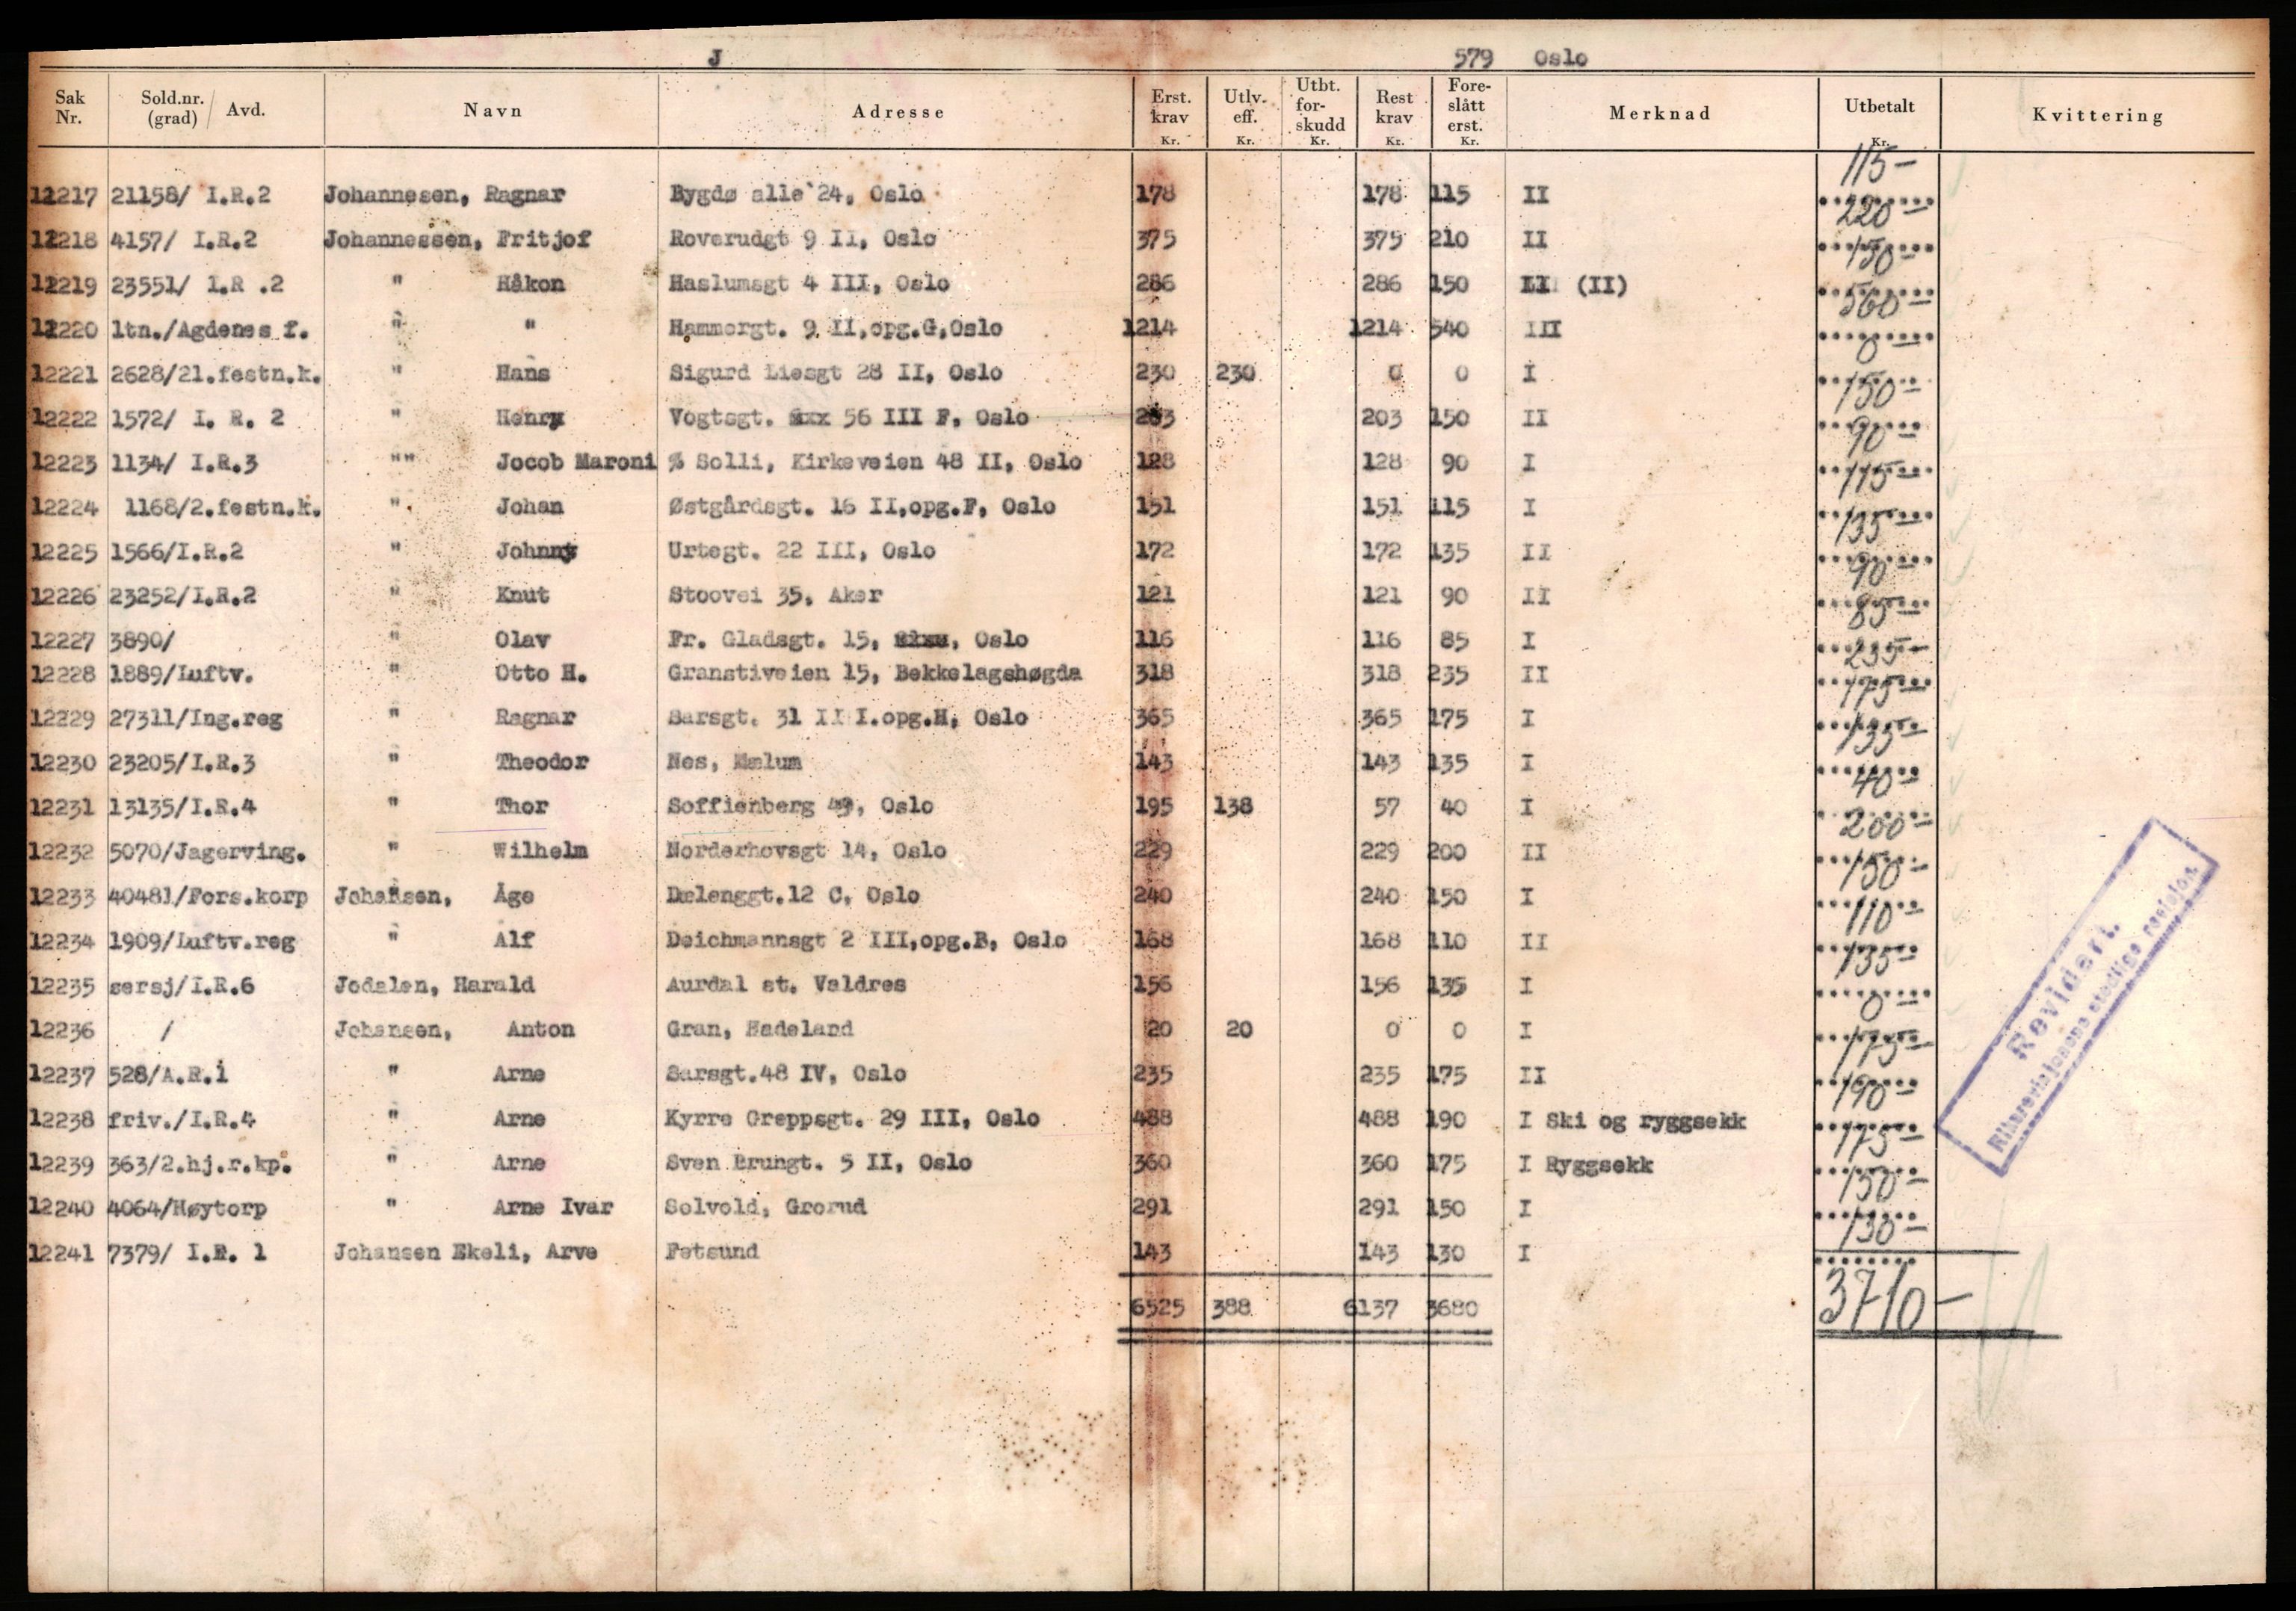 J 579 Oslo
Sak Nr. Sold.nr. (grad) / Avd. Navn Adresse Erst. krav Kr. Utlv. eff. Kr. Utbt. for- skudd Kr. Rest krav Kr. Fore- slått erst. Kr. Merknad Utbetalt Kr. Kvittering
12217 21158/ I.R.2 Johannesen, Ragnar Bygdø alle 24, Oslo 178 178 115 II 115-
12218 4157/ I.R.2 Johannessen, Fritjof Roverudgt 9 II, Oslo 375 375 210 II 220-
12219 23551/ I.R .2 " Håkon Haslumsgt 4 III, Oslo 286 286 150 (II) 150-
12220 ltn./Agdenes f. " " Hammergt. 9 II,opg.G,Oslo 1214 1214 540 III 560-
12221 2628/21.festn.k. " Hans Sigurd Liesgt 28 II, Oslo 230 230 0 0 I 0-
12222 1572/ I. R. 2 " Henry Vogtsgt. 56 III F, Oslo 203 203 150 II 150-
12223 1134/ I.R.3 "" Jocob Maroni % Solli, Kirkeveien 48 II, Oslo 128 128 90 I 90-
12224 1168/2.festn.k. " Johan Østgårdsgt. 16 II,opg.F, Oslo 151 151 115 I 115-
12225 1566/I.R.2 " Johnny Urtegt. 22 III, Oslo 172 172 135 II 135-
12226 23252/I.R.2 " Knut Stoovei 35, Aker 121 121 90 II 90-
12227 3890/ " Olav Fr. Gladsgt. 15, Oslo 116 116 85 I 85-
12228 1889/Luftv. " Otto H. Granstiveien 15, Bekkelagshøgda 318 318 235 II 235-
12229 27311/Ing.reg " Ragnar Sarsgt. 31 III.opg.H, Oslo 365 365 175 I 175-
12230 23205/I.R.3 " Theodor Nes, Mælum 143 143 135 I 135-
12231 13135/I.R.4 " Thor Soffienberg 49, Oslo 195 138 57 40 I 40-
12232 5070/Jagerving. " Wilhelm Norderhovsgt 14, Oslo 229 229 200 II 200-
12233 40481/Fors.korp Johansen, Åge Dælenggt.12 C, Oslo 240 240 150 I 150-
12234 1909/Luftv.reg " Alf Deichmannsgt 2 III,opg.B, Oslo 168 168 110 II 110-
12235 sersj/I.R.6 Jodalen, Harald Aurdal st. Valdres 156 156 135 I 135-
12236 / Johansen, Anton Gran, Hadeland 20 20 0 0 I 0-
12237 528/A.R.i " Arne Sarsgt.48 IV, Oslo 235 235 175 II 175-
12238 friv./I.R.4 " Arne Kyrre Greppsgt. 29 III, Oslo 488 488 190 I Ski og ryggsekk 190-
12239 363/2.hj.r.kp. " Arne Sven Brungt. 5 II, Oslo 360 360 175 I Ryggsekk 175-
12240 4064/Høytorp " Arne Ivar Solvold, Grorud 291 291 150 I 150-
12241 7379/ I.R. 1 Johansen Ekeli, Arve Fetsund 143 143 130 I 130-
6525 388 6137 3680 3710-
Revidert.
Riksrevisjonens stedlige revisjon.